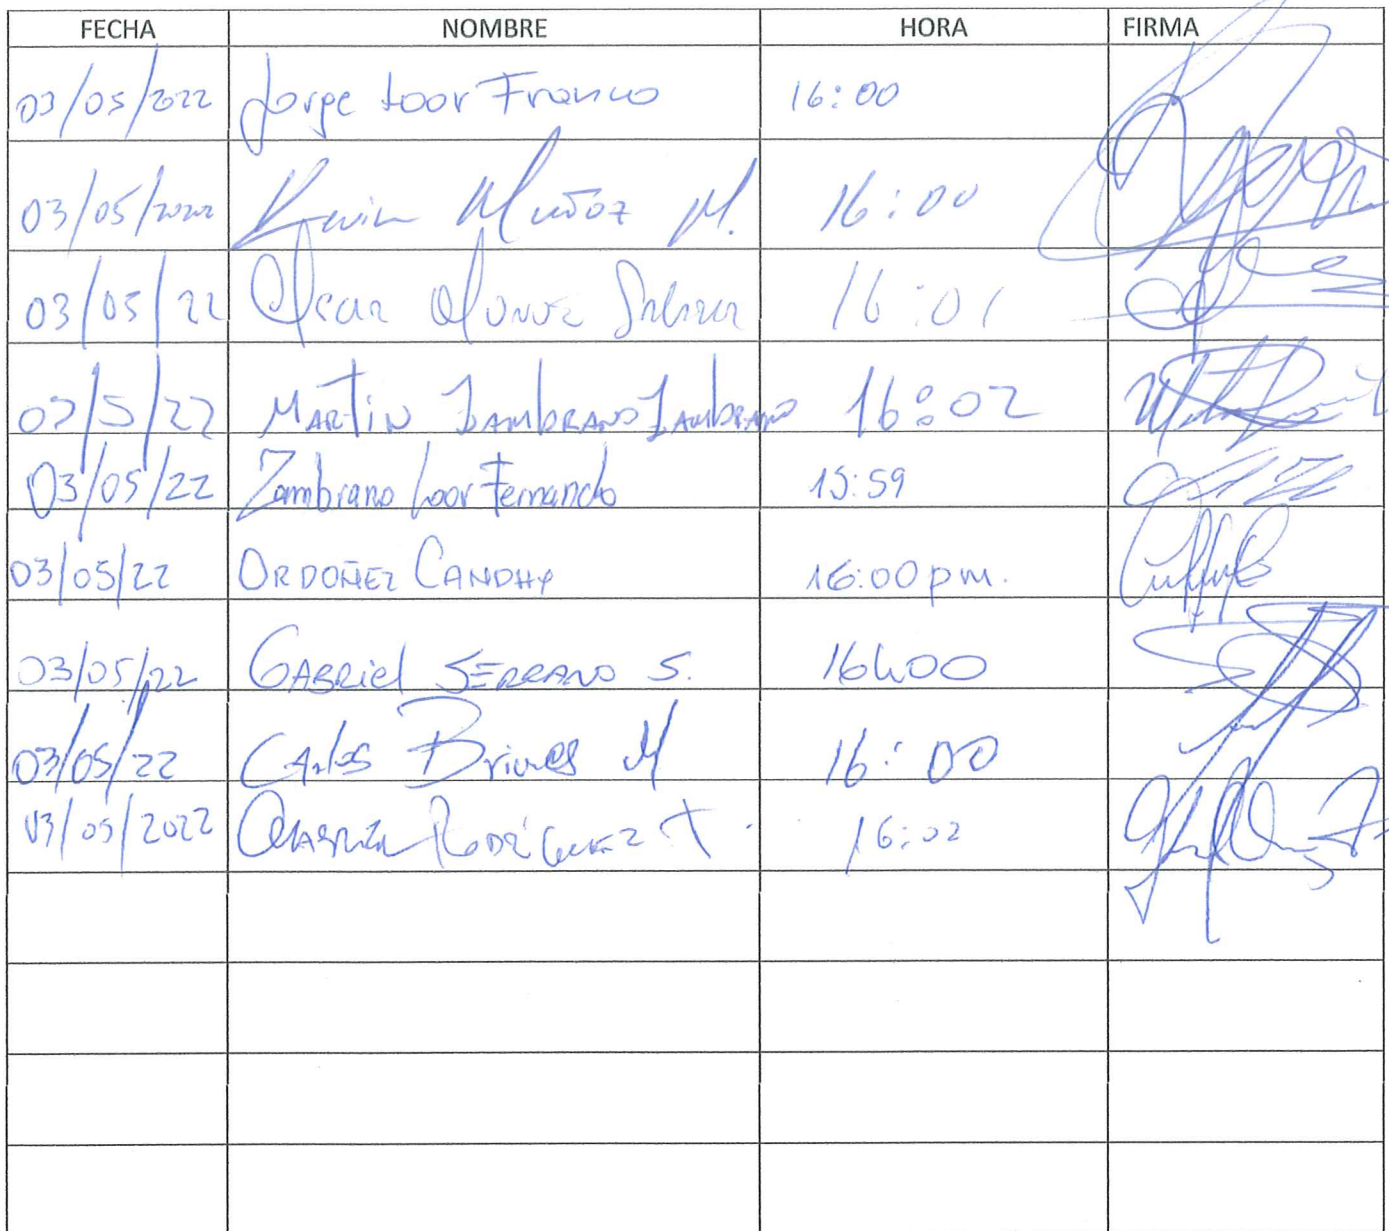 FECHA NOMBRE HORA FIRMA
03/05/2022 Jorge Loor Franco 16:00
03/05/2022 Kevin Muñoz M. 16:00
03/05/22 Oscar 16:01
03/5/22 MARTIN ZAMBRANO ZAMBRANO 16:02
03/05/22 Zambrano Loor Fernando 15:59
03/05/22 ORDOÑEZ CANDHY 16:00 pm.
03/05/22 GABRIEL SERRANO S. 16h00
03/05/22 Carlos M 16:00
03/05/2022 RODRÍGUEZ T. 16:02